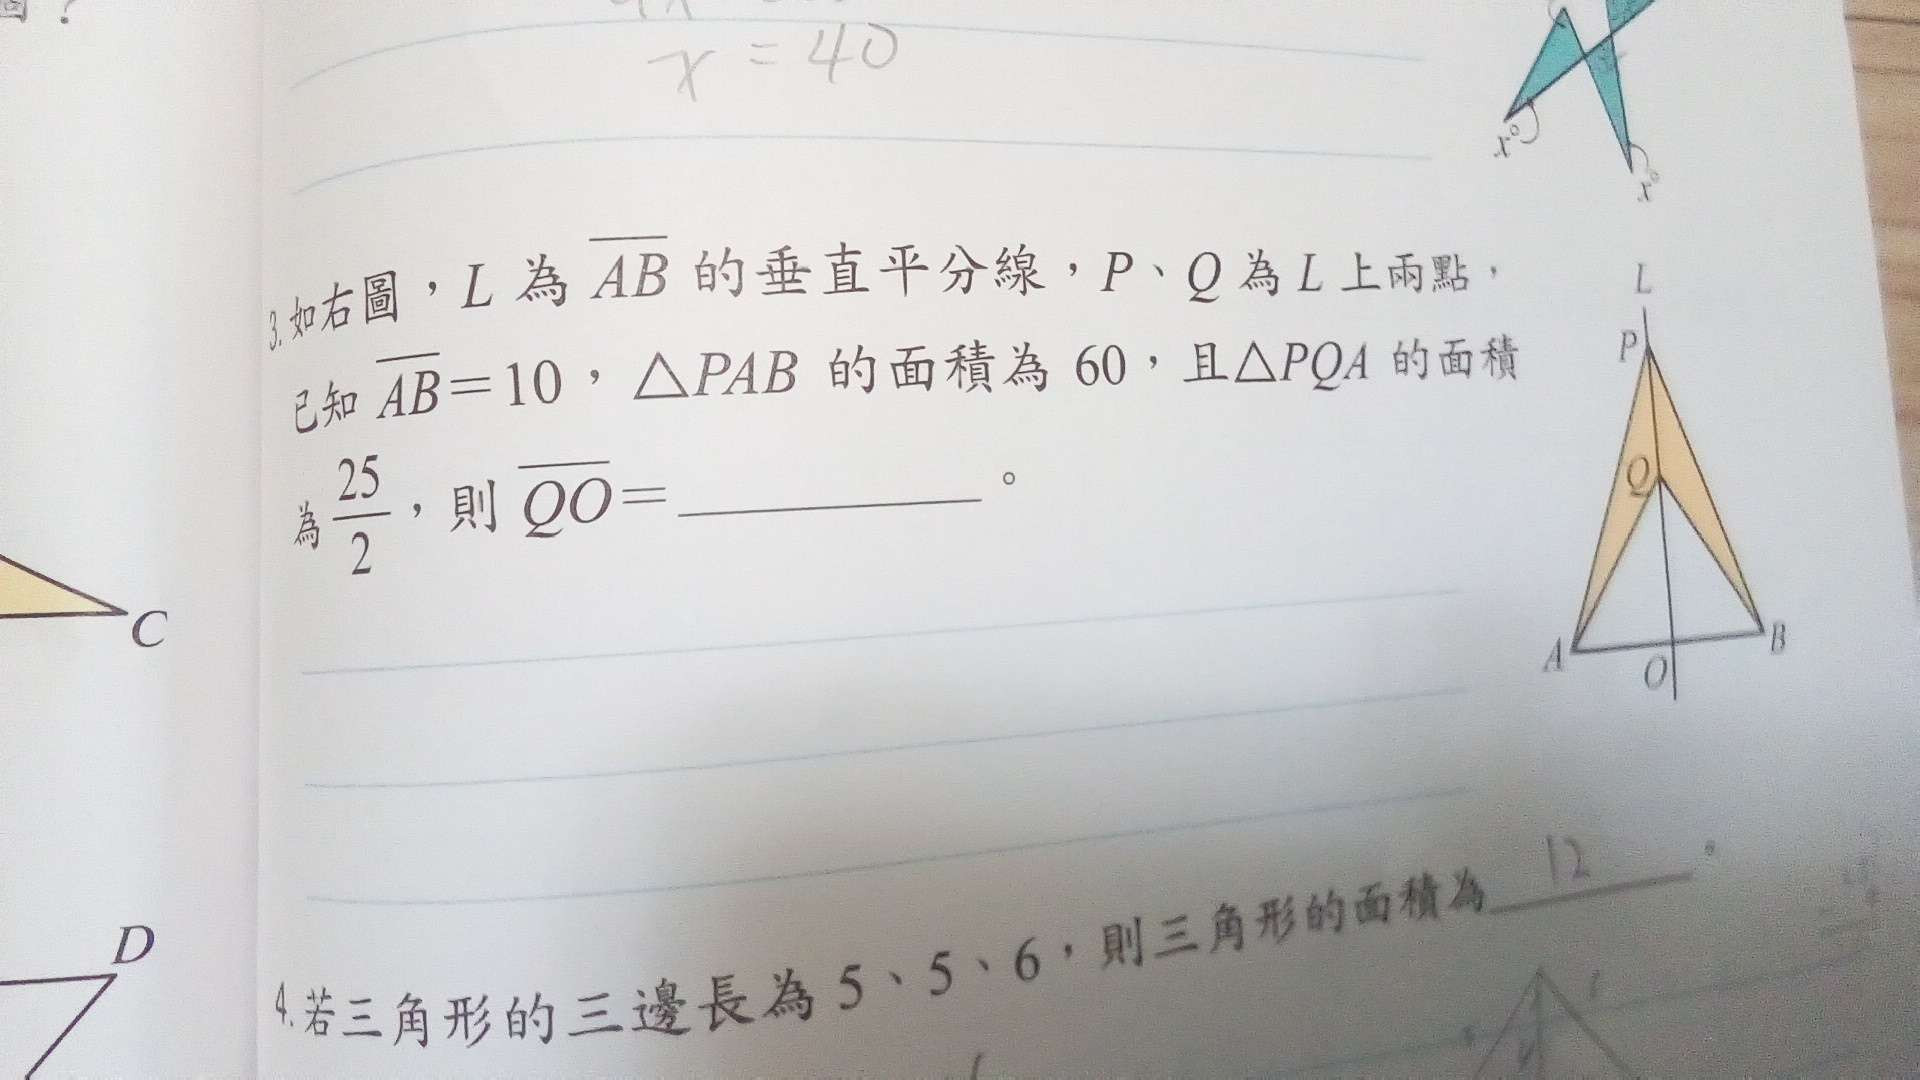 x = 40
x°
x°
3. 如右圖，L 為 AB 的垂直平分線，P、Q 為 L 上兩點，
已知 AB=10，△PAB 的面積為 60，且△PQA 的面積
為 25/2，則 QO=________。
L
P
Q
A
O
B
C
D
4. 若三角形的三邊長為 5、5、6，則三角形的面積為 12 。